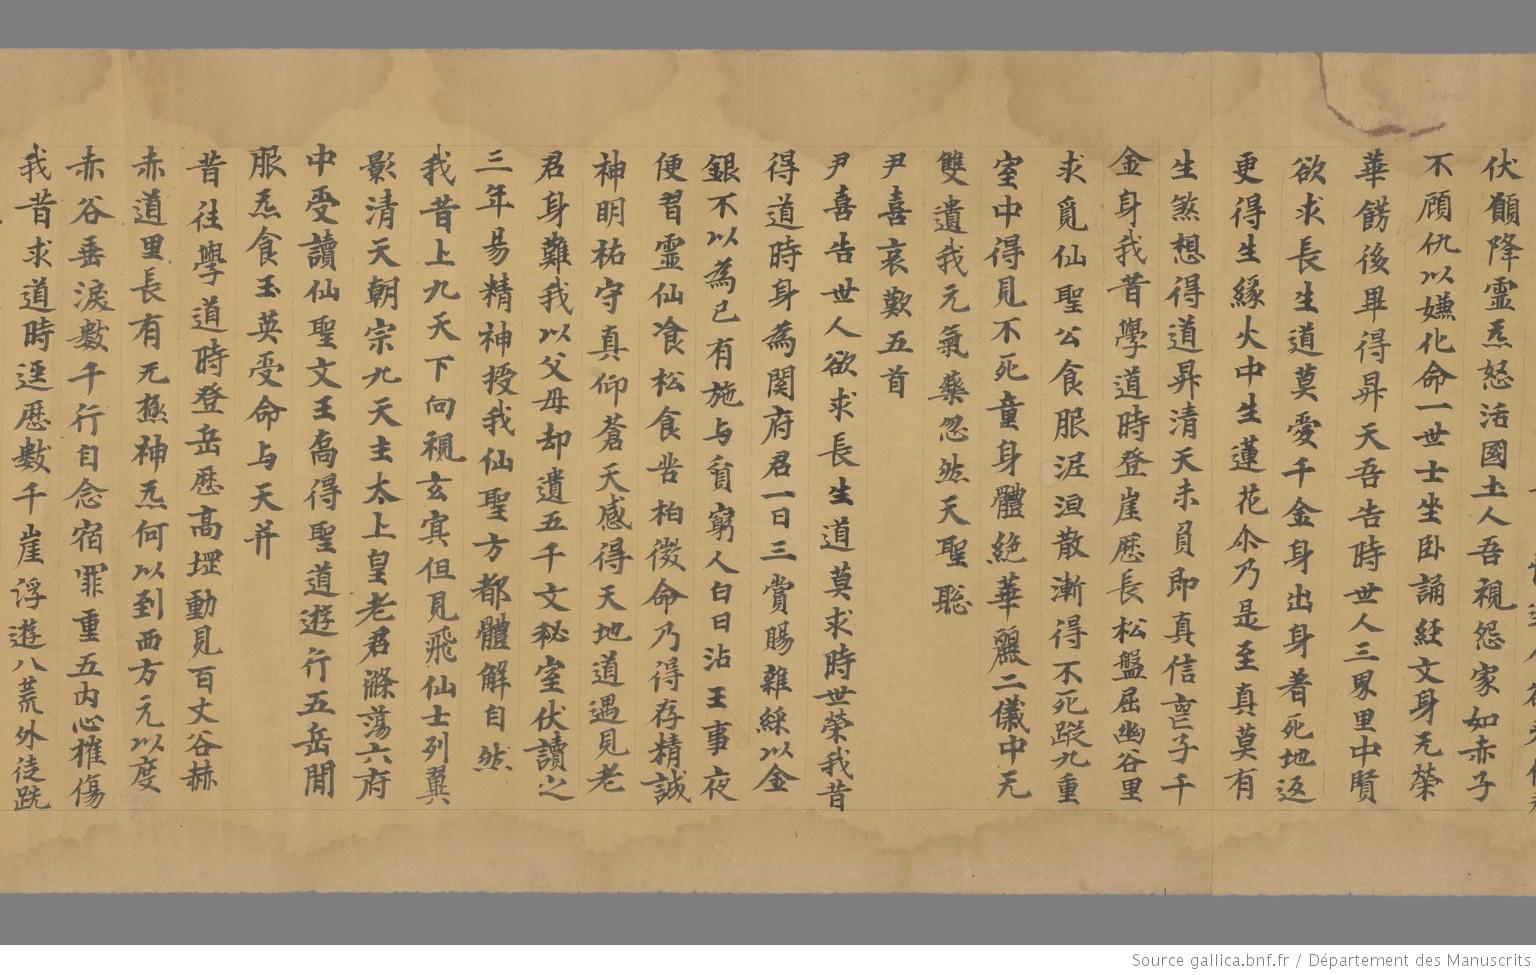 伏願降靈炁怒活國土人吾視怨家如赤子
不顧仇以嫌化命一世士坐卧誦経文身无榮
華餝後畢得昇天吾告時世人三界里中賢
欲求長生道莫愛千金身出身著死地返
更得生緣火中生蓮花尒乃是至真莫有
生煞想得道昇清天未員即真信亶子千
金身我昔學道時登崖歷長松盤屈幽谷里
求覓仙聖公食服泥洹散漸得不死蹤九重
室中得見不死童身體絶華麗二儀中无
雙遺我元氣藥忽然天聖聡
尹喜哀歎五首
尹喜告世人欲求長生道莫求時世榮我昔
得道時身為関府君一日三賞賜雜綵以金
銀不以為已有施与貧窮人白日沾王事夜
便習霊仙飡松食苦柏微命乃得存精誠
神明祐守真仰蒼天感得天地道遇見老
君身難我以父母却遺五千文秘室伏讀之
三年易精神授我仙聖方都體解自然
我昔上九天下向視玄㝠但見飛仙士列翼
影清天朝宗九天主太上皇老君滌蕩六府
中受讀仙聖文王喬得聖道遊行五岳間
服炁食玉英受命与天并
昔往學道時登岳歷高堽動見百丈谷赫
赤道里長有无極神炁何以到西方元以度
赤谷垂淚數千行自念宿罪重五内心摧傷
我昔求道時逕歷數千崖浮遊八荒外徒跣
Source gallica.bnf.fr / Département des Manuscrits